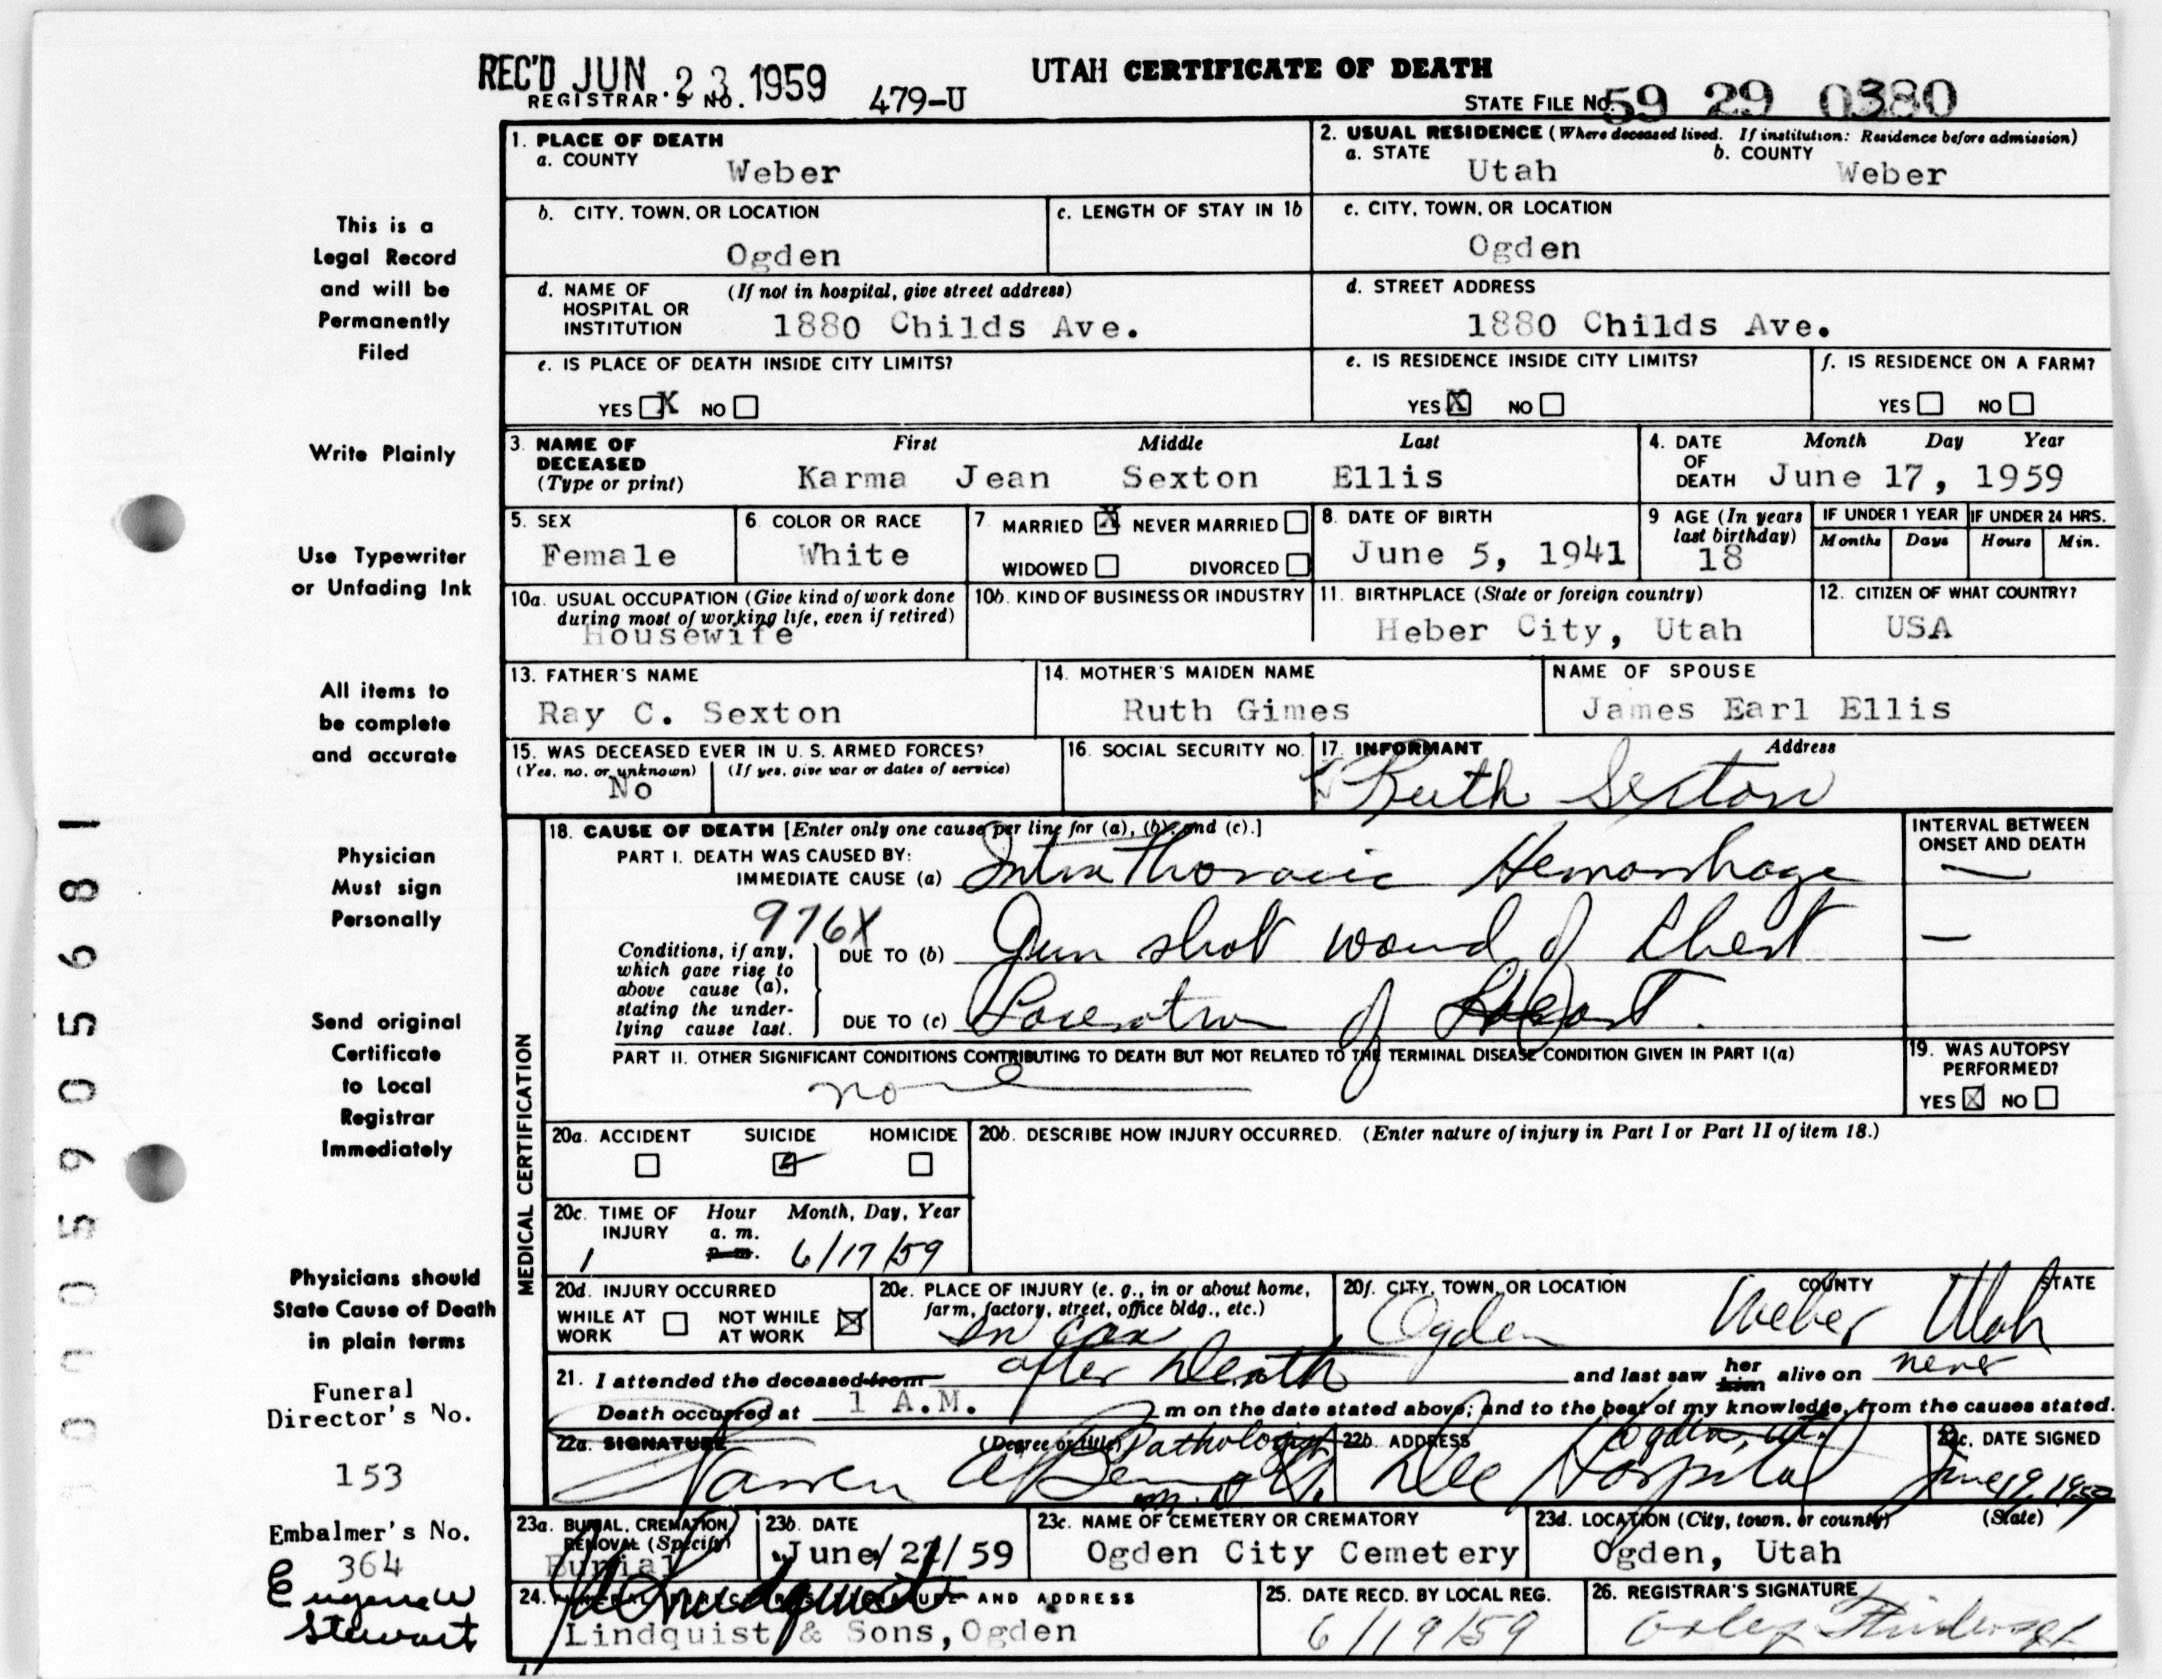 REC'D JUN. 23 1959
UTAH CERTIFICATE OF DEATH
REGISTRAR'S NO. 479-U
STATE FILE NO. 59 29 0380
1. PLACE OF DEATH
a. COUNTY
Weber
2. USUAL RESIDENCE (Where deceased lived. If institution: Residence before admission)
a. STATE b. COUNTY
Utah Weber
b. CITY, TOWN, OR LOCATION
Ogden
c. LENGTH OF STAY IN 1b
c. CITY, TOWN, OR LOCATION
Ogden
d. NAME OF HOSPITAL OR INSTITUTION (If not in hospital, give street address)
1880 Childs Ave.
d. STREET ADDRESS
1880 Childs Ave.
e. IS PLACE OF DEATH INSIDE CITY LIMITS?
YES X NO
e. IS RESIDENCE INSIDE CITY LIMITS?
YES X NO
f. IS RESIDENCE ON A FARM?
YES NO
3. NAME OF DECEASED (Type or print)
First Middle Last
Karma Jean Sexton Ellis
4. DATE OF DEATH
Month Day Year
June 17, 1959
5. SEX
Female
6. COLOR OR RACE
White
7. MARRIED X NEVER MARRIED
WIDOWED DIVORCED
8. DATE OF BIRTH
June 5, 1941
9 AGE (In years last birthday)
18
IF UNDER 1 YEAR
Months Days
IF UNDER 24 HRS.
Hours Min.
10a. USUAL OCCUPATION (Give kind of work done during most of working life, even if retired)
Housewife
10b. KIND OF BUSINESS OR INDUSTRY
11. BIRTHPLACE (State or foreign country)
Heber City, Utah
12. CITIZEN OF WHAT COUNTRY?
USA
13. FATHER'S NAME
Ray C. Sexton
14. MOTHER'S MAIDEN NAME
Ruth Gimes
NAME OF SPOUSE
James Earl Ellis
15. WAS DECEASED EVER IN U. S. ARMED FORCES?
(Yes, no, or unknown) (If yes, give war or dates of service)
No
16. SOCIAL SECURITY NO.
17. INFORMANT Address
Ruth Sexton
MEDICAL CERTIFICATION
18. CAUSE OF DEATH [Enter only one cause per line for (a), (b), and (c).]
PART I. DEATH WAS CAUSED BY:
IMMEDIATE CAUSE (a) Intra Thoracic Hemorrhage
INTERVAL BETWEEN ONSET AND DEATH
—
976X
Conditions, if any, which gave rise to above cause (a), stating the underlying cause last.
DUE TO (b) Gun shot wound of chest
—
DUE TO (c) Laceration of Heart.
PART II. OTHER SIGNIFICANT CONDITIONS CONTRIBUTING TO DEATH BUT NOT RELATED TO THE TERMINAL DISEASE CONDITION GIVEN IN PART I(a)
none
19. WAS AUTOPSY PERFORMED?
YES X NO
20a. ACCIDENT SUICIDE HOMICIDE
20b. DESCRIBE HOW INJURY OCCURRED. (Enter nature of injury in Part I or Part II of item 18.)
20c. TIME OF INJURY
Hour Month, Day, Year
a. m.
p. m.
1 6/17/59
20d. INJURY OCCURRED
WHILE AT WORK NOT WHILE AT WORK X
20e. PLACE OF INJURY (e. g., in or about home, farm, factory, street, office bldg., etc.)
In Car
20f. CITY, TOWN, OR LOCATION COUNTY STATE
Ogden Weber Utah
21. I attended the deceased from after Death and last saw her him alive on never
Death occurred at 1 A.M. m on the date stated above; and to the best of my knowledge, from the causes stated.
22a. SIGNATURE (Degree or title) Pathologist
M.D.
22b. ADDRESS
Ogden, Ut.
Dee Hospital
22c. DATE SIGNED
June 19, 1959
23a. BURIAL, CREMATION, REMOVAL (Specify)
Burial
23b. DATE
June/ 22/59
23c. NAME OF CEMETERY OR CREMATORY
Ogden City Cemetery
23d. LOCATION (City, town, or county) (State)
Ogden, Utah
24. FUNERAL DIRECTOR'S SIGNATURE AND ADDRESS
Lindquist & Sons, Ogden
25. DATE RECD. BY LOCAL REG.
6/19/59
26. REGISTRAR'S SIGNATURE
This is a
Legal Record
and will be
Permanently
Filed
Write Plainly
Use Typewriter
or Unfading Ink
All items to
be complete
and accurate
Physician
Must sign
Personally
Send original
Certificate
to Local
Registrar
Immediately
Physicians should
State Cause of Death
in plain terms
Funeral
Director's No.
153
Embalmer's No.
364
Eugene W
Stewart
0005905681